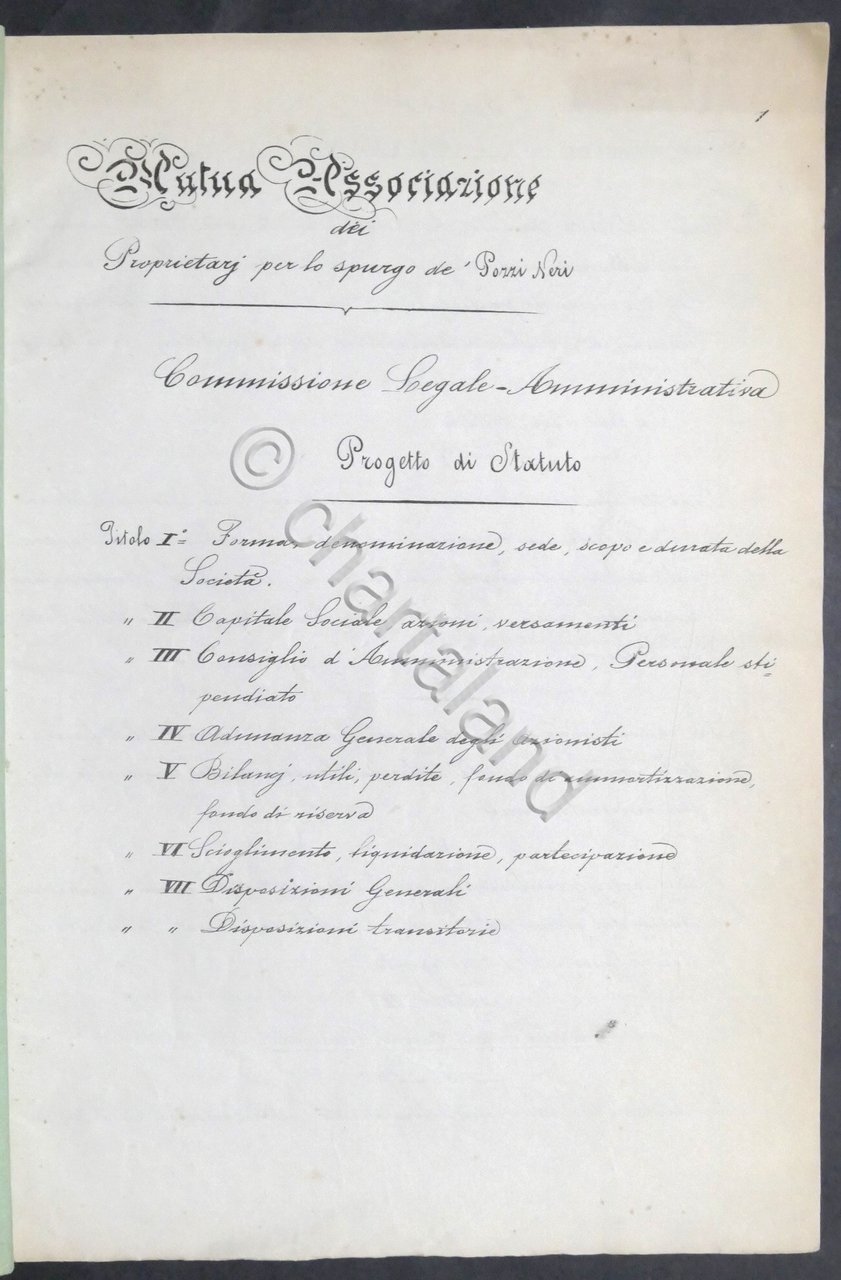 1
Mutua Associazione
dei
Proprietarj per lo spurgo de' Pozzi Neri
Commissione Legale-Amministrativa
Progetto di Statuto
Titolo I° Forma, denominazione, sede, scopo e durata della
Società.
" II Capitale Sociale, azioni, versamenti
" III Consiglio d'Amministrazione, Personale sti-
pendiato
" IV Adunanza Generale degli azionisti
" V Bilanj, utili, perdite, fondo di ammortizzazione,
fondo di riserva
" VI Scioglimento, liquidazione, partecipazione
" VII Disposizioni Generali
" " Disposizioni transitorie
© chartaland